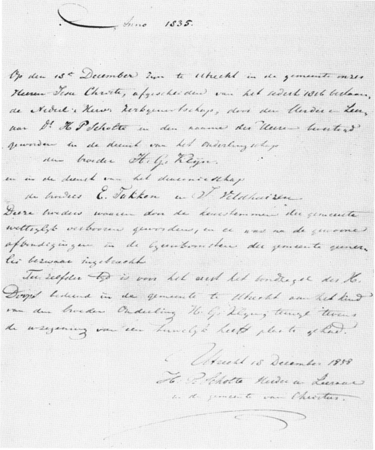 Anno 1835.
Op den 13e December zijn te Utrecht in de gemeente onzes
Heeren Jesu Christi, afgescheiden van het
de Nederl. Herv. Kerkgenootschap, door den Herder en Leer-
aar Ds. H. P. Scholte en den naam des Heeren bevestigd
geworden in de dienst van het ouderlingschap
den broeder H. G. Kleijn
en in de dienst van het diakenschap
de broeders E. Fokken en T. Veldhuizen
Deeze broeders waren door de der gemeente
wettelijk verkoren geworden, en er was na de gewoone
afkondigingen in de bijeenkomsten der gemeente geener-
lei bezwaar ingebracht
Ten zelfden tijd is voor het eerst het bondzegel des H.
Doops bediend in de gemeente te Utrecht aan het kind
van den broeder Ouderling H. G. Kleijn terwijl tevens
de inzegening van een huwelijk heeft plaats gehad.
Utrecht 13 December 1835
H. P. Scholte Herder en Leeraar
in de gemeente van Christus.